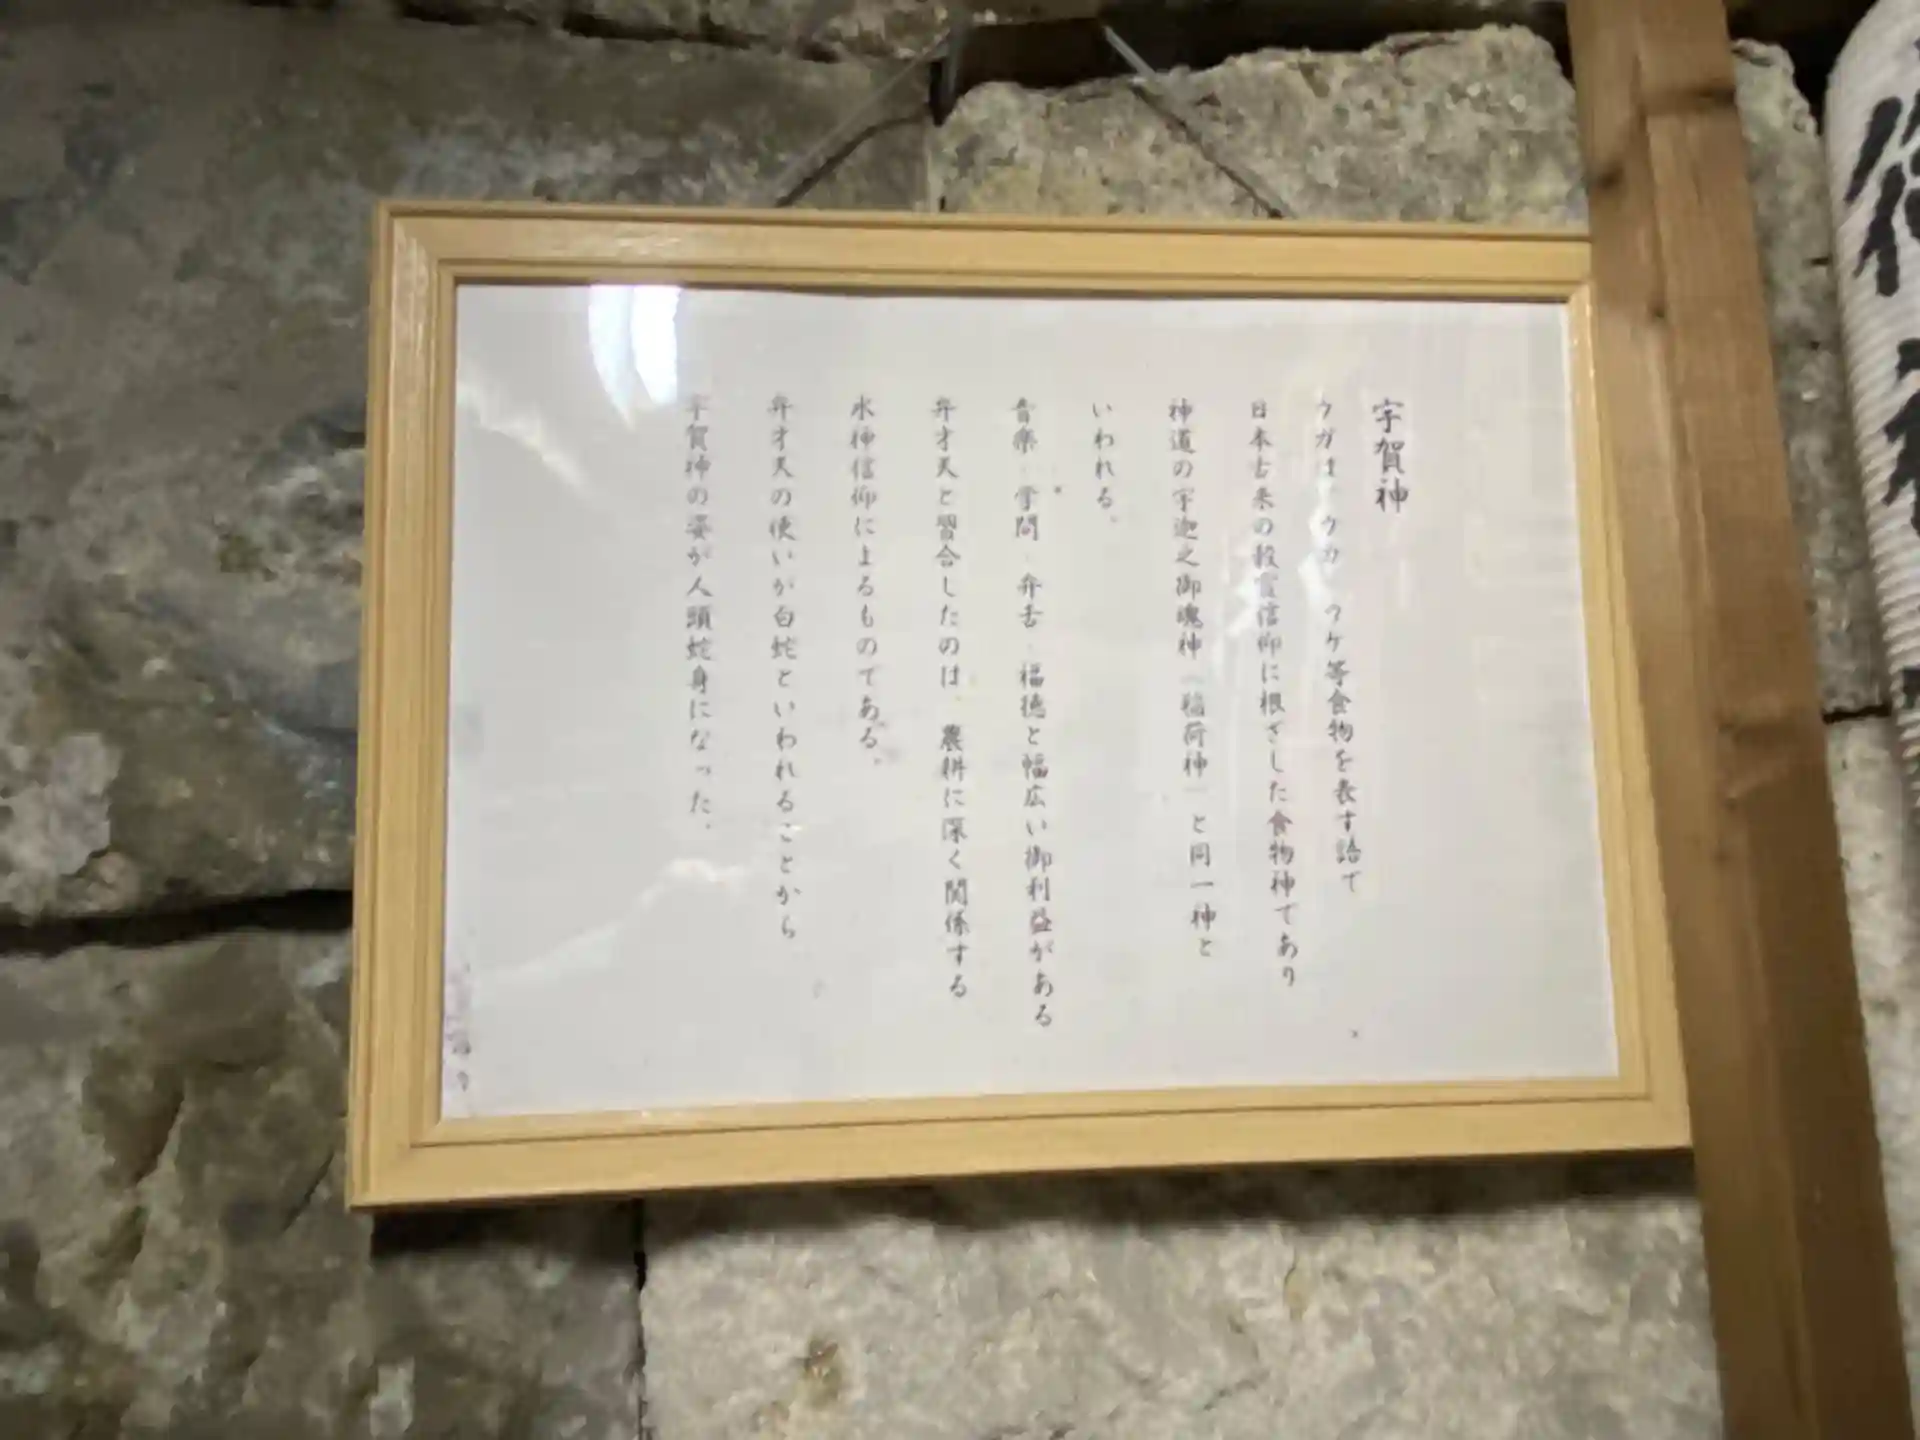 宇賀神
ウガは、ウカ、ウケ等食物を表す語で
日本古来の穀霊信仰に根ざした食物神であり
神道の宇迦之御魂神（稲荷神）と同一神と
いわれる。
音楽・学問・弁舌・福徳と幅広い御利益がある
弁才天と習合したのは、農耕に深く関係する
水神信仰によるものである。
弁才天の使いが白蛇といわれることから
宇賀神の姿が人頭蛇身になった。